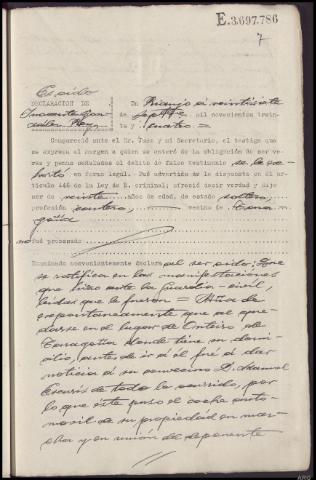 E.3.697.786
7
Es oido
DECLARACION DE
Inocente Gon
zález Rey
En Rianjo a veintisiete
de sepbre de mil novecientos trein-
ta y cuatro =
Compareció ante el Sr. Juez y mi Secretario, el testigo que
se expresa al margen a quien se enteró de la obligación de ser ve-
raz y penas señaladas al delito de falso testimonio se le ex-
hortó en forma legal. Fué advertido de lo dispuesto en el
artículo 446 de la Ley de E. criminal, ofreció decir verdad y dijo
ser de veinte años de edad, de estado soltero,
profesión cantero, vecino de Tara
goña
no fué procesado
Examinado convenientemente declara al ser oido; Que
se ratifica en las manifestaciones
que hizo ante la Guardia-civil,
leidas que le fueron = Añade
espontaneamente que al que-
darse en el lugar de Outeiro, de
Taragoña donde tiene su domi-
cilio, antes de ir a él fué a dar
noticia a su convecino D. Manuel
de todo lo ocurrido, por
lo que éste puso el coche auto-
movil de su propiedad en mar-
cha y en unión del deponente